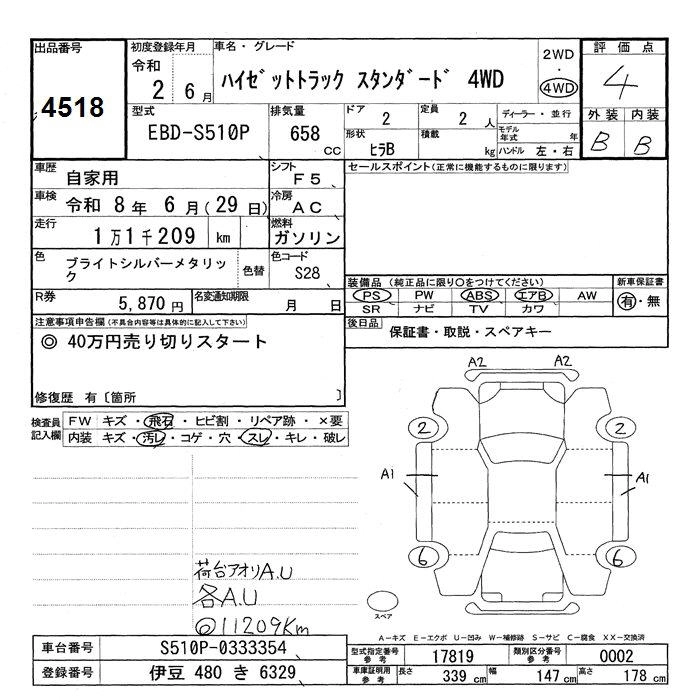 出品番号
4518
初度登録年月
令和
2 6月
車名・グレード
ﾊｲｾﾞｯﾄﾄﾗｯｸ ｽﾀﾝﾀﾞｰﾄﾞ 4WD
2WD
・
4WD
評価点
4
外装 内装
B B
型式
EBD-S510P
排気量
658
CC
ドア
2
定員
2 人
ディーラー・並行
形状
ﾋﾗB
積載
kg
モデル年式
年
ハンドル 左・右
車歴
自家用
シフト
F5
車検
令和 8年 6月(29日)
冷房
AC
走行
1万1千209 km
燃料
ガソリン
色
ブライトシルバーメタリック
色替
色コード
S28
R券
5,870円
名変通知期限
月 日
セールスポイント(正常に機能するものに限ります)
装備品 (純正品に限り○をつけてください)
新車保証書
PS PW ABS エアB AW
SR ナビ TV カワ
有・無
後日品
保証書・取説・スペアキー
注意事項申告欄(不具合内容等は具体的に記入して下さい)
◎ 40万円売り切りスタート
修復歴 有〔箇所 〕
検査員記入欄
FW キズ・飛石・ヒビ割・リペア跡・×要
内装 キズ・汚レ・コゲ・穴・スレ・キレ・破レ
A2 A2
2 2
A1 A1
6 6
スペア
荷台アオリA.U
各A.U
◎11209Km
A-キズ E-エクボ U-凹み W-補修跡 S-サビ C-腐食 XX-交換済
車台番号
S510P-0333354
登録番号
伊豆 480 き 6329
型式指定番号 参考
17819
類別区分番号 参考
0002
車庫証明用 参考
長さ 339 cm
幅 147 cm
高さ 178 cm